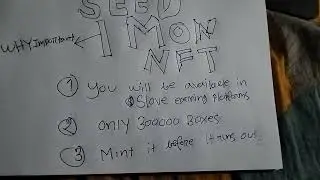 SEED
WHY Important
1 MON
NFT
1 you will be available in
Slove earning platforms
2 only 300000 Boxes
3 Mint it before it runs out